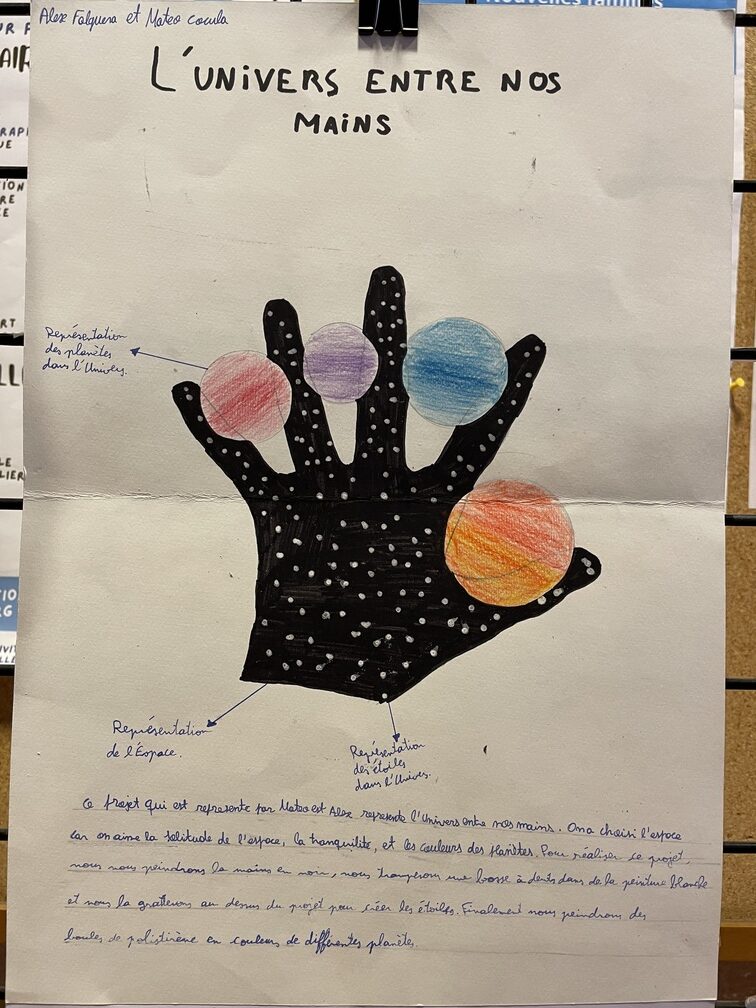 Nouvelles familles
Alex Falguera et Mateo cocula
L'UNIVERS ENTRE NOS
MAINS
Représentation
des planètes
dans l'Univers.
Représentation
de l'Espace.
Représentation
des étoiles
dans l'Univers.
Ce projet qui est representé par Mateo est Alex represente l'Univers entre nos mains. On a choisi l'espace
car on aime la solitude de l'espace, la tranquilité, et les couleurs des planètes. Pour réaliser ce projet,
nous nous peindrons la mains en noir, nous tremperons une bosse à dents dans de la peinture blanche
et nous la gratterons au dessus du projet pour créer les étoiles. Finalement nous peindrons des
boules de polistirène en couleurs de différentes planètes.